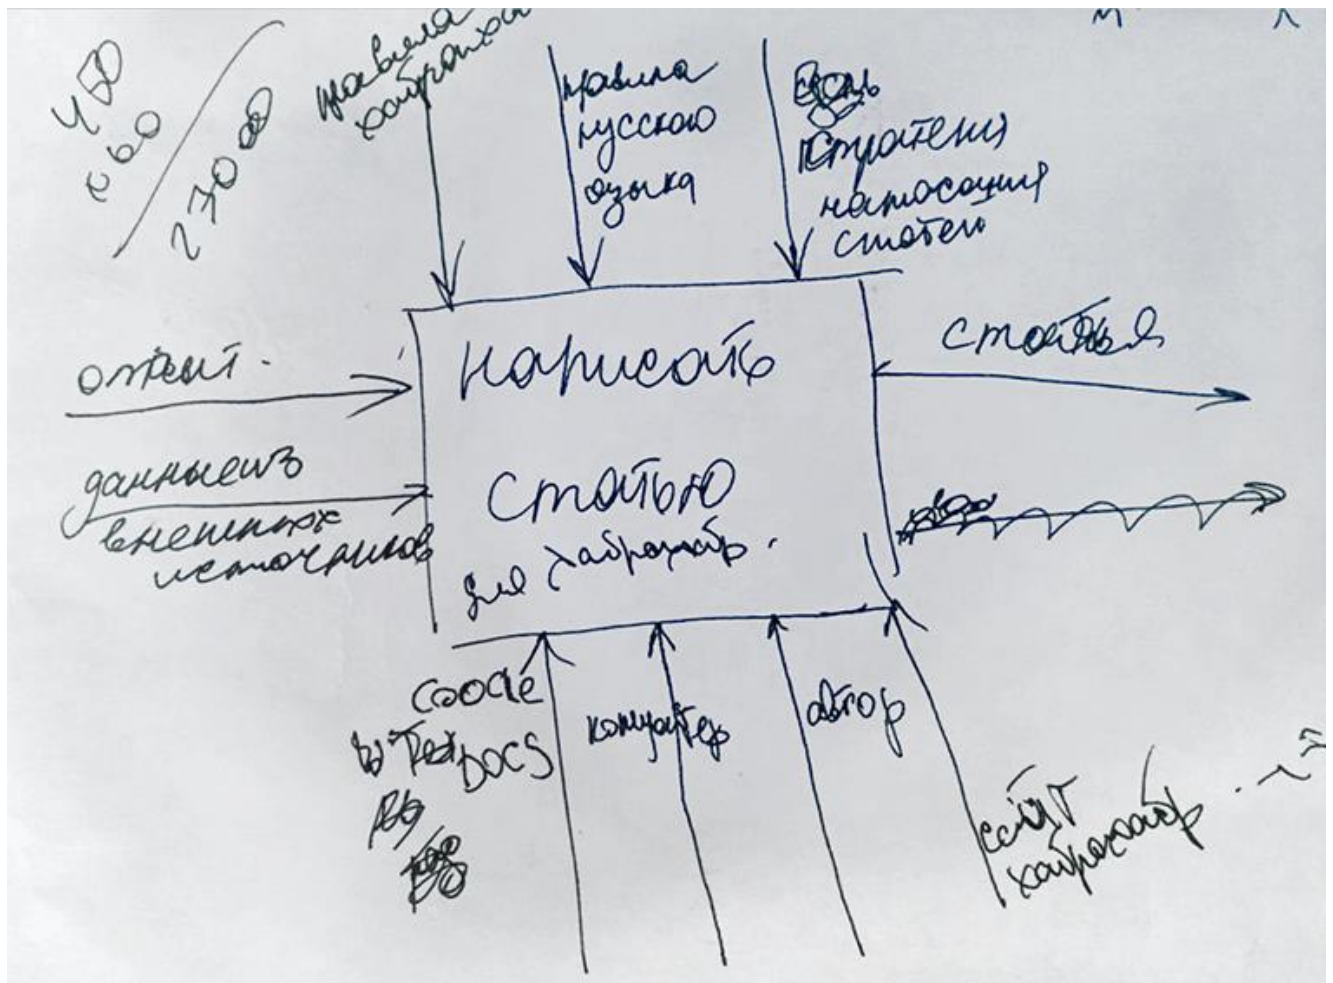 450
x 60
27000
правила
хабрахаб
правила
русского
языка
стратегия
написания
статей
опыт.
данные из
внешних
источников
написать
статью
для хабрахабр.
статья
GOOGLE
DOCS
компьютер
автор
сайт
хабрахабр